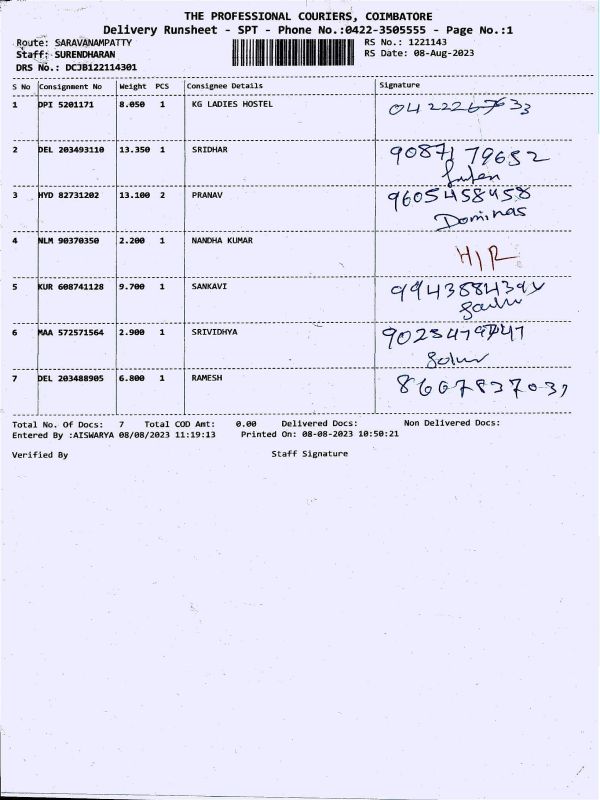 THE PROFESSIONAL COURIERS, COIMBATORE
Delivery Runsheet - SPT - Phone No.:0422-3505555 - Page No.:1
Route: SARAVANAMPATTY RS No.: 1221143
Staff: SURENDHARAN RS Date: 08-Aug-2023
DRS No.: DCJB122114301
S No Consignment No Weight PCS Consignee Details Signature
1 DPI 5201171 8.050 1 KG LADIES HOSTEL
2 DEL 203493110 13.350 1 SRIDHAR 9087179652
3 HYD 82731202 13.100 2 PRANAV 9605458458
Dominas
4 NLM 90370350 2.200 1 NANDHA KUMAR H/R
5 KUR 608741128 9.700 1 SANKAVI
6 MAA 572571564 2.900 1 SRIVIDHYA
7 DEL 203488905 6.800 1 RAMESH
Total No. Of Docs: 7 Total COD Amt: 0.00 Delivered Docs: Non Delivered Docs:
Entered By :AISWARYA 08/08/2023 11:19:13 Printed On: 08-08-2023 10:50:21
Verified By Staff Signature